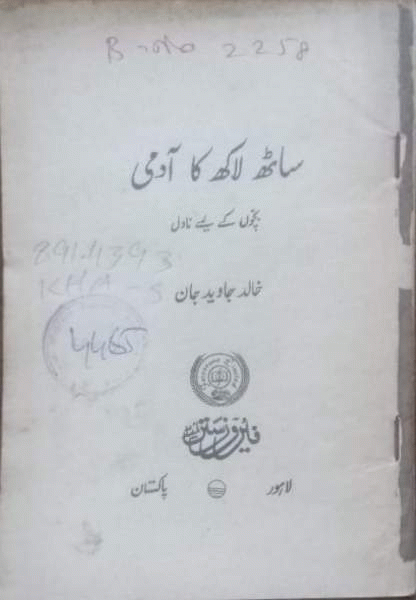 B-No 2258
ساٹھ لاکھ کا آدمی
بچّوں کے لیے ناول
891.4393
KHA-S
خالد جاوید جان
فیروز سنز
لاہور پاکستان